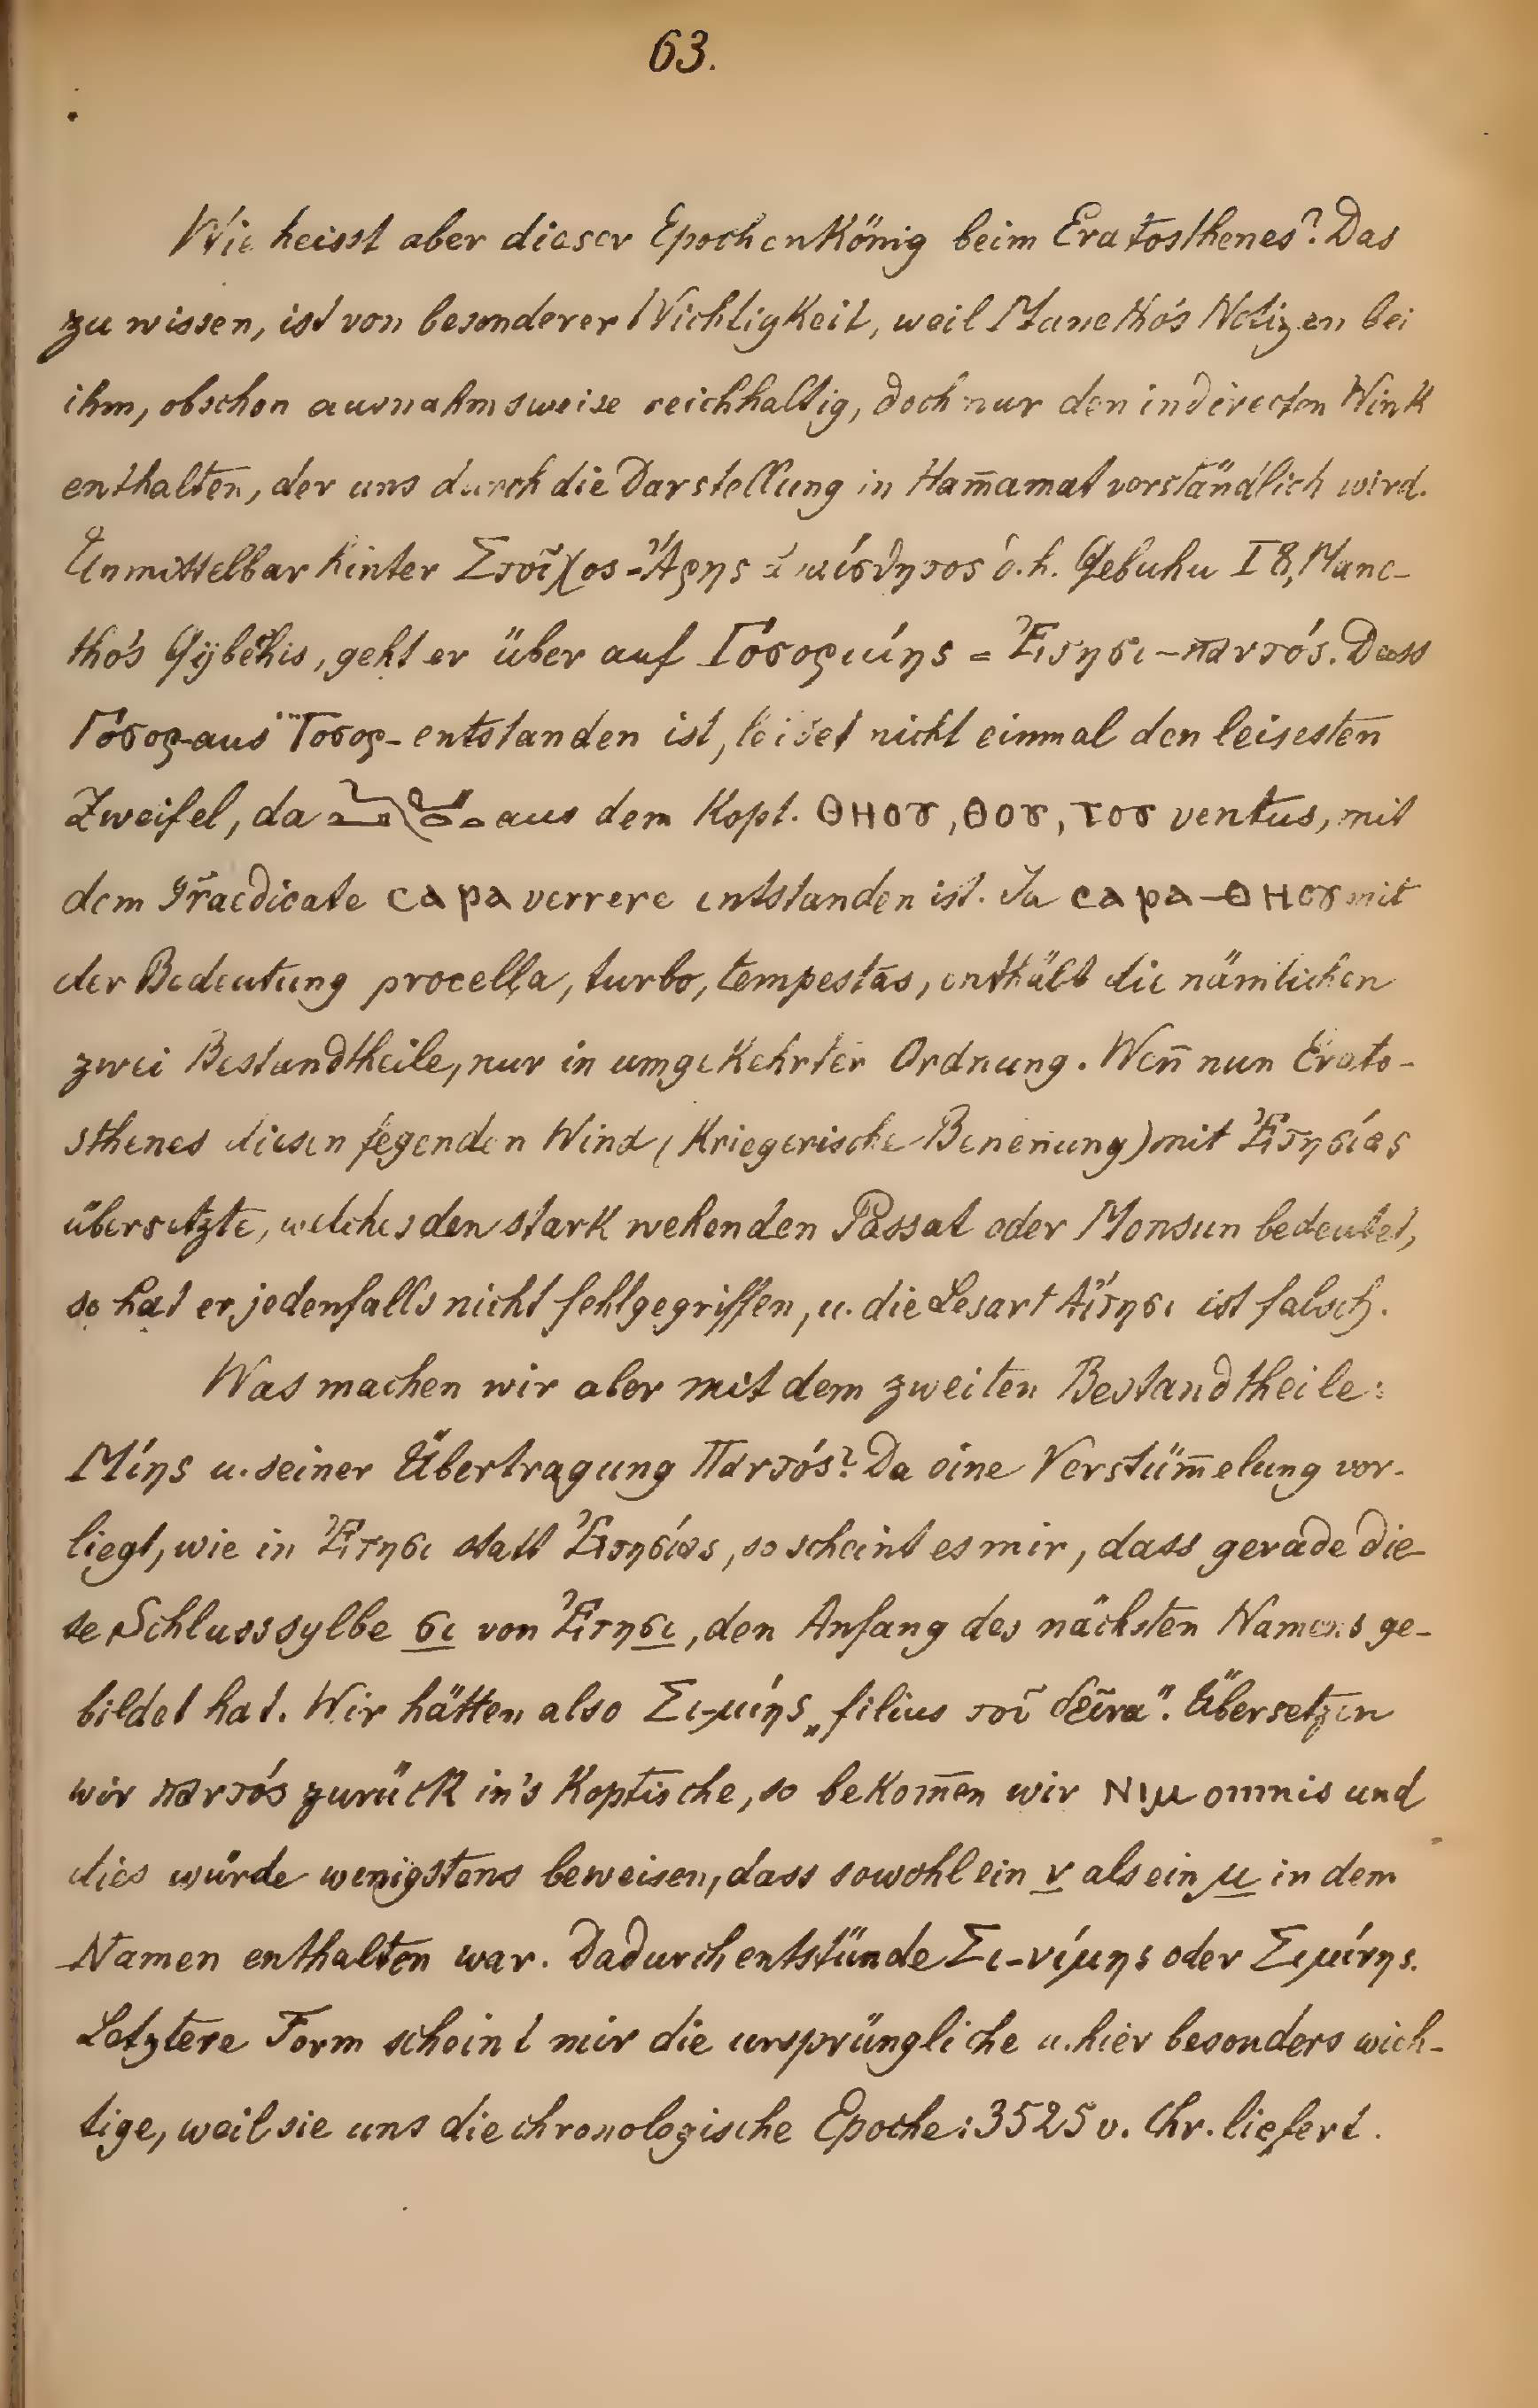 63.
Wie heisst aber dieser Epochenkönig beim Eratosthenes? Das
zu wissen, ist von besonderer Wichtigkeit, weil Manetho's Notizen bei
ihm, obschon ausnahmsweise reichhaltig, doch nur den indirecten Wink
enthalten, der uns durch die Darstellung in Ham̅amat verständlich wird.
Unmittelbar hinter Στοῖχος = Ἄρης ἀναίσθητος d. h. Qebuhu I 8, Mane-
tho's Qÿbēhis, geht er über auf Γόσορμίης = Ἐτησι-παντός. Dass
Γόσορ- aus Τοσορ- entstanden ist, leidet nicht einmal den leisesten
Zweifel, da aus dem Kopt. ΘΗΟϒ, ΘΟϒ, ΤΟϒ ventus, mit
dem Praedicate ⲥⲁⲣⲁ verrere entstanden ist. Ja ⲥⲁⲣⲁ-ΘΗΟϒ mit
der Bedeutung procella, turbo, tempestas, enthält die nämlichen
zwei Bestandtheile, nur in umgekehrter Ordnung. Wen̅ nun Erato-
sthenes diesen fegenden Wind (kriegerische Benen̅ung) mit Ἐτησίας
übersetzte, welches den stark wehenden Passat oder Monsun bedeutet,
so hat er jedenfalls nicht fehlgegriffen, u. die Lesart Αἴτησι ist falsch.
Was machen wir aber mit dem zweiten Bestandtheile:
Μίης u. seiner Übertragung Παντός? Da eine Verstüm̅elung vor-
liegt, wie in Ἐτησι statt Ἐτησίας, so scheint es mir, dass gerade die-
se Schlusssylbe σι von Ἐτησι, den Anfang des nächsten Namens ge-
bildet hat. Wir hätten also Σι-μίης „filius τοῦ δεῖνα". Übersetzen
wir παντός zurück in's Koptische, so bekom̅en wir ⲚⲒⲘ omnis und
dies würde wenigstens beweisen, dass sowohl ein ν als ein μ in dem
Namen enthalten war. Dadurch entstünde Σι-νίμης oder Σιμίνης.
Letztere Form scheint mir die ursprüngliche u. hier besonders wich-
tige, weil sie uns die chronologische Epoche: 3525 v. Chr. liefert.